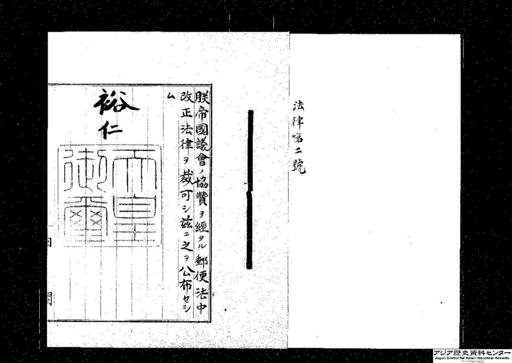 法律第二號
朕帝國議會ノ協贊ヲ經タル郵便法中
改正法律ヲ裁可シ茲ニ之ヲ公布セシ
ム
裕仁
天皇御璽
アジア歴史資料センター
Japan Center for Asian Historical Records